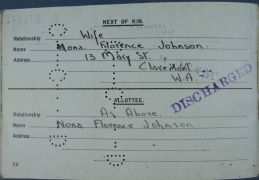 NEXT OF KIN.
Relationship Wife
Name Mona Florence Johnson.
Address 13 Mary St.
Claremont
W.A.
DISCHARGED
ALLOTTEE.
Relationship As Above.
Name Mona Florence Johnson
Address